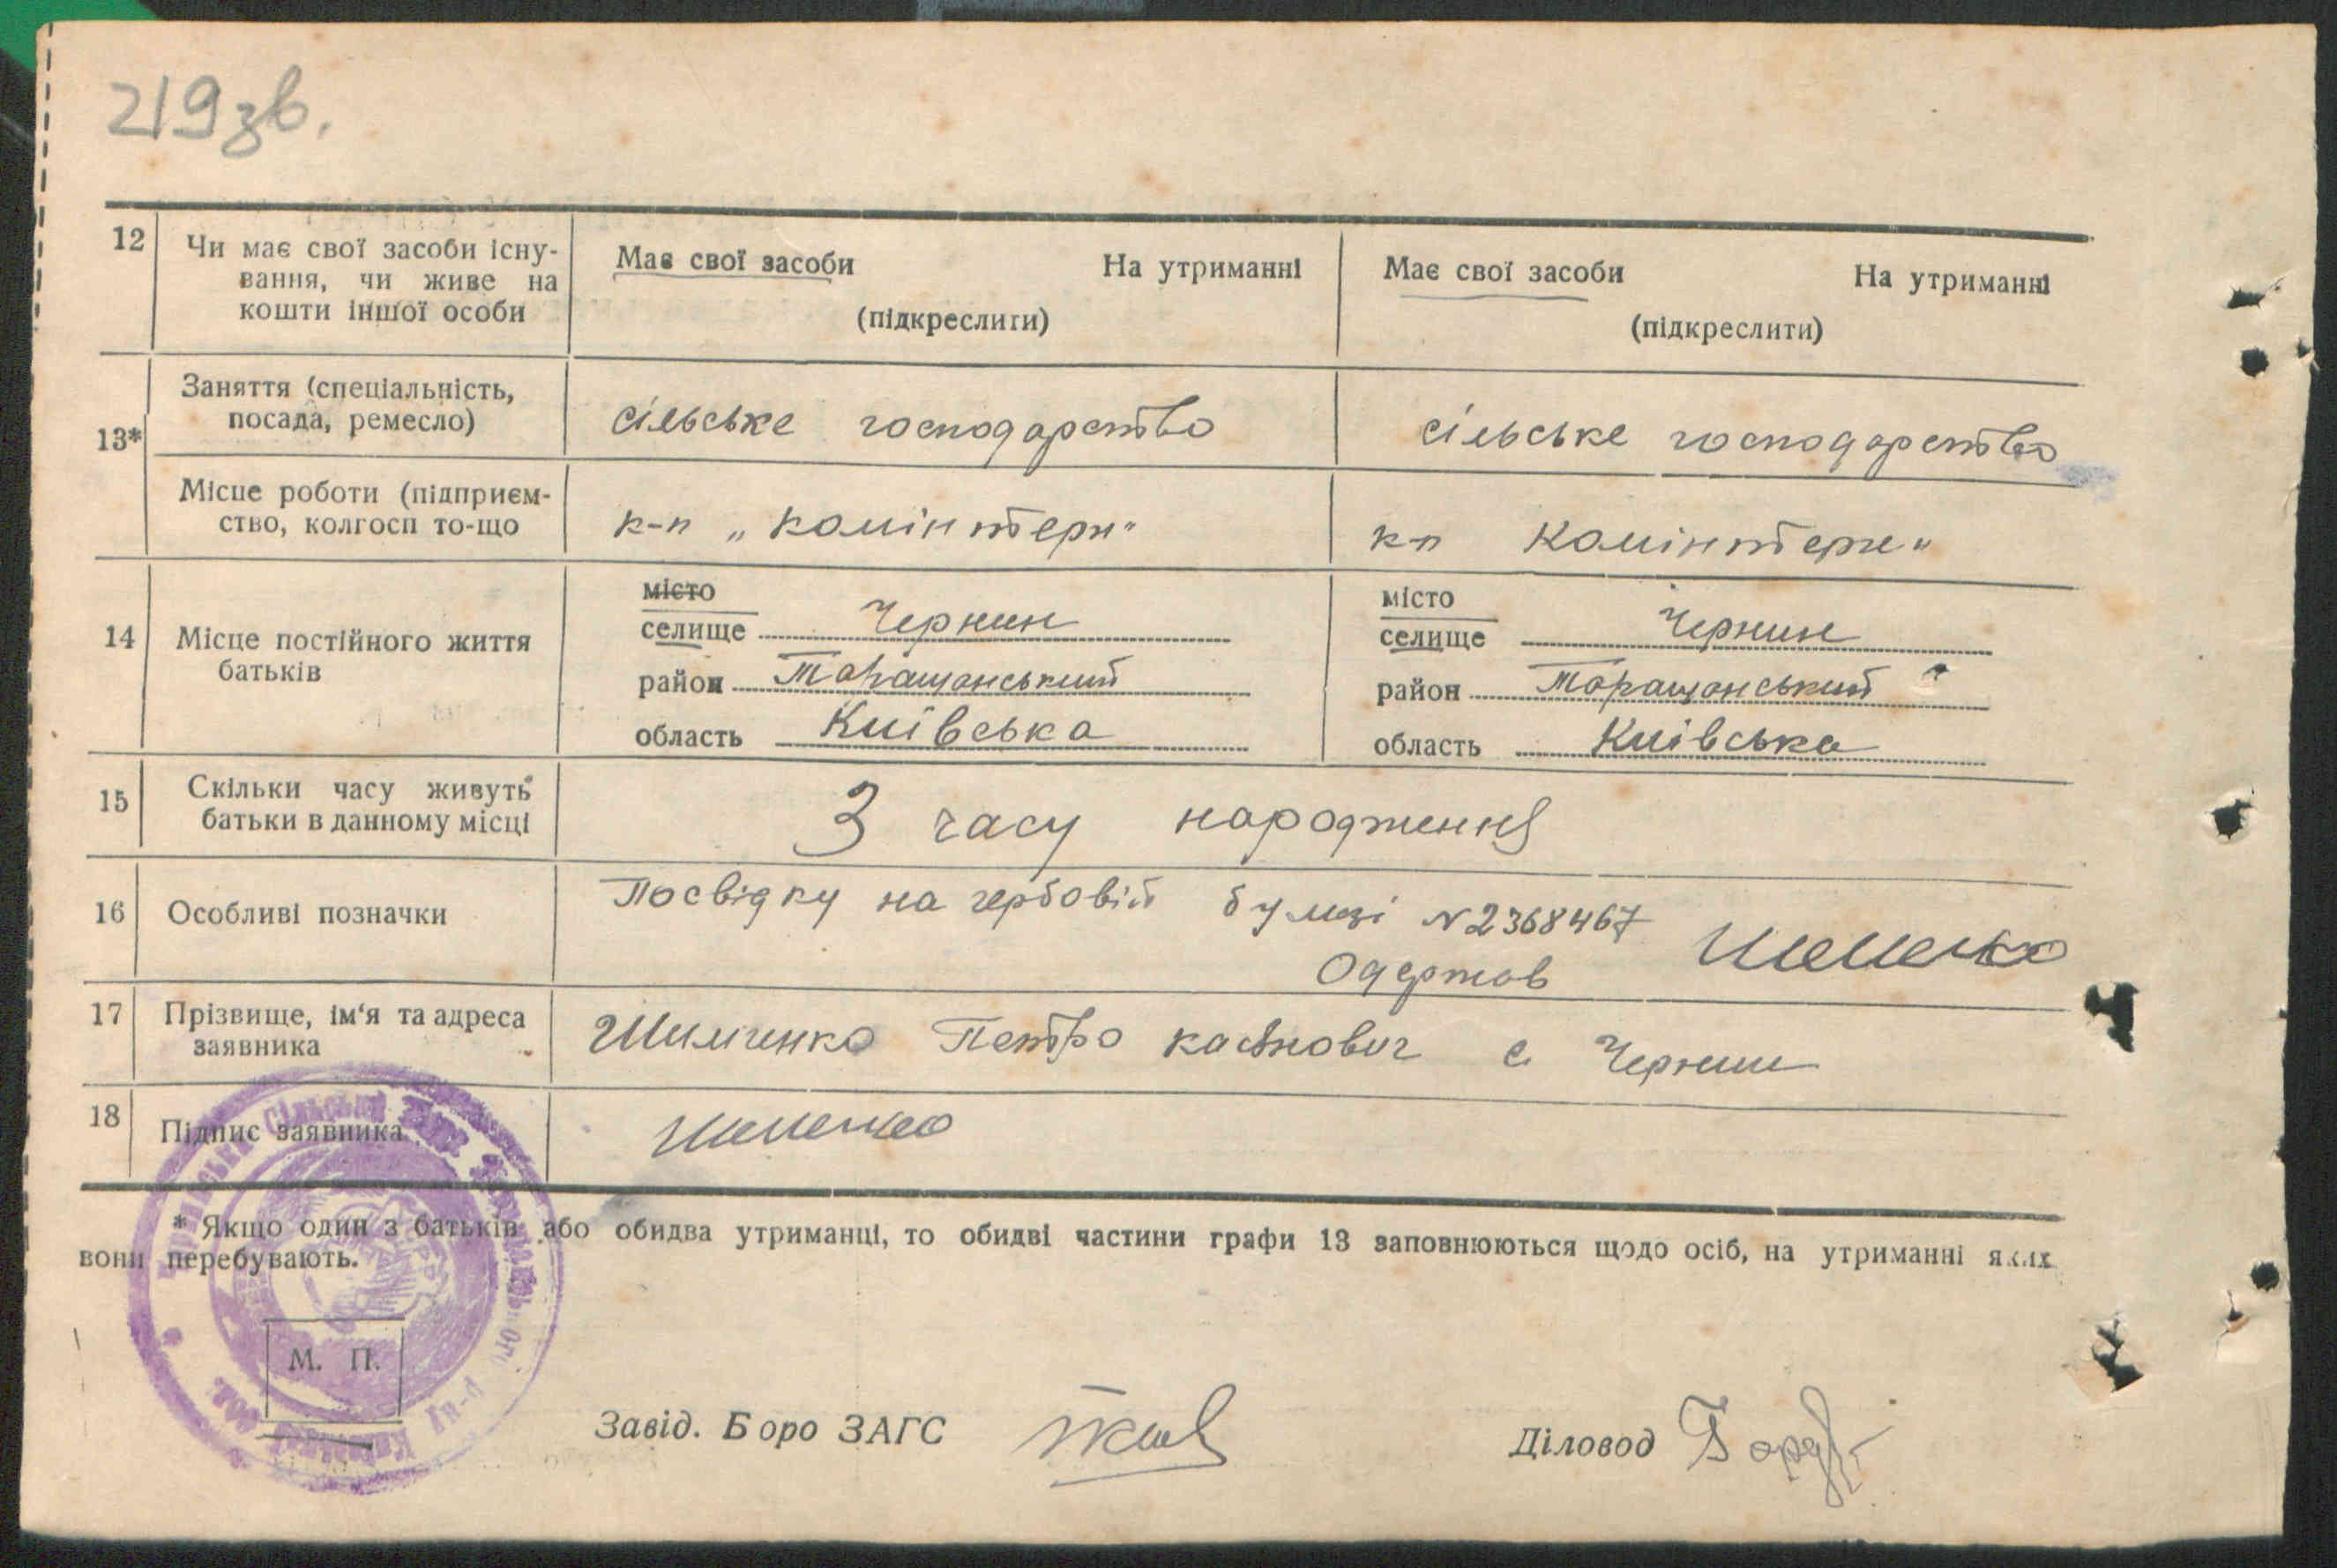 219зв.
12 Чи має свої засоби існу-
вання, чи живе на
кошти іншої особи
Має свої засоби На утриманні
(підкреслити)
Має свої засоби На утриманні
(підкреслити)
13* Заняття (спеціальність,
посада, ремесло)
сільське господарство
сільське господарство
Місце роботи (підприєм-
ство, колгосп то-що
к-п „комінтерн"
к-п Комінтерн"
14 Місце постійного життя
батьків
місто
селище Чернин
район Таращанський
область Київська
місто
селище Чернин
район Таращанський
область Київська
15 Скільки часу живуть
батьки в данному місці
З часу народження
16 Особливі позначки
Посвідку на гербовій бумзі N2368467
Одержав
17 Прізвище, ім'я та адреса
заявника
Шимченко Петро касянович с Чернин
18 Підпис заявника
* Якщо один з батьків або обидва утриманці, то обидві частини графи 13 заповнюються щодо осіб, на утриманні яких
вони перебувають.
М. П.
Завід. Боро ЗАГС
Діловод